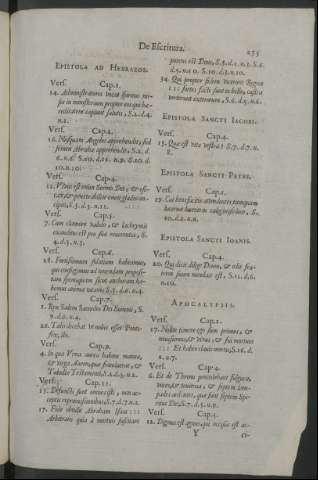 De Escritura.
255
EPISTOLA AD HEBRAEOS.
Vers. Cap.1.
14. Administratorii
in ministerium propter eos qui hæ-
reditatem capiunt salutis, S.2.d.4.
n.2.
Vers. Cap.2.
16. Nusquam Angelos apprehendit, sed
semen Abrahæ apprehendit, S.2. d.
10.n.10.
Vers. Cap.4.
12. Vivus est enim Sermo Dei, & effi-
cax, & penetrabilior omni gladio an-
cipiti, S.3.d.3. n.12.
Vers. Cap.5.
7. Cum clamore valido, & lachrymis
exauditus est pro sua reverentia, S.
4.d.3. n.3.
Vers. Cap.6.
18. Fortissimum solatium habeamus,
qui confugimus ad tenendam proposi-
tam spem, quam sicut anchoram ha-
bemus animæ
Vers. Cap.7.
1. Rex Salem Sacerdos Dei Summi, S.
26. Talis decebat ut nobis esset Ponti-
fex, ibi.
Vers. Cap.9.
4. In qua Urna aurea habens manna,
& virga Aaron, quæ fronduerat, &
Tabulæ Testamenti, S.2.d.3. n.2.
Vers. Cap.11.
35. Distenti sunt non
ceptis redemptionem, S.7.d.7.n.2.
17. Fide obtulit Abraham Isaac :::
Arbitrans quia à mortuis suscitare
potens est Deus,
34. Qui propter fidem vicerunt Regna
::: fortes facti sunt in bello, castra
verterunt exterorum, S.6. d.5. n.6.
EPISTOLA SANCTI IACOBI.
Vers. Cap.4.
15. Quæ est vita vestra? S.7. d.7. n.
8.
EPISTOLA SANCTI PETRI.
Vers. Cap.1.
19. Cui benefacitis attendentes tamquam
lucernæ lucenti in caliginoso loco, S.
10.d.2. n.8.
EPISTOLA SANCTI IOANIS.
Vers. Cap.4.
20. Qui dicit diligo Deum, & odit fra-
trem suum mendax est, S.11. d.6.
n.10.
APOCALYPSIS.
Vers. Cap.1.
17. Noli timere ego sum primus, &
novissimus, & vivus, & fui mortuus
::: Et habeo claves mortis, S.16. d.
Vers. Cap.4.
5. Et de Throno procedebant fulgura,
voces, & tonitrua, & septem lam-
pades ardentes, quæ sunt septem Spi-
ritus Dei, S.7. d.5. n.9.
Vers. Cap.5.
12. Dignus est agnus, qui occisus est ac-
Y
ci-